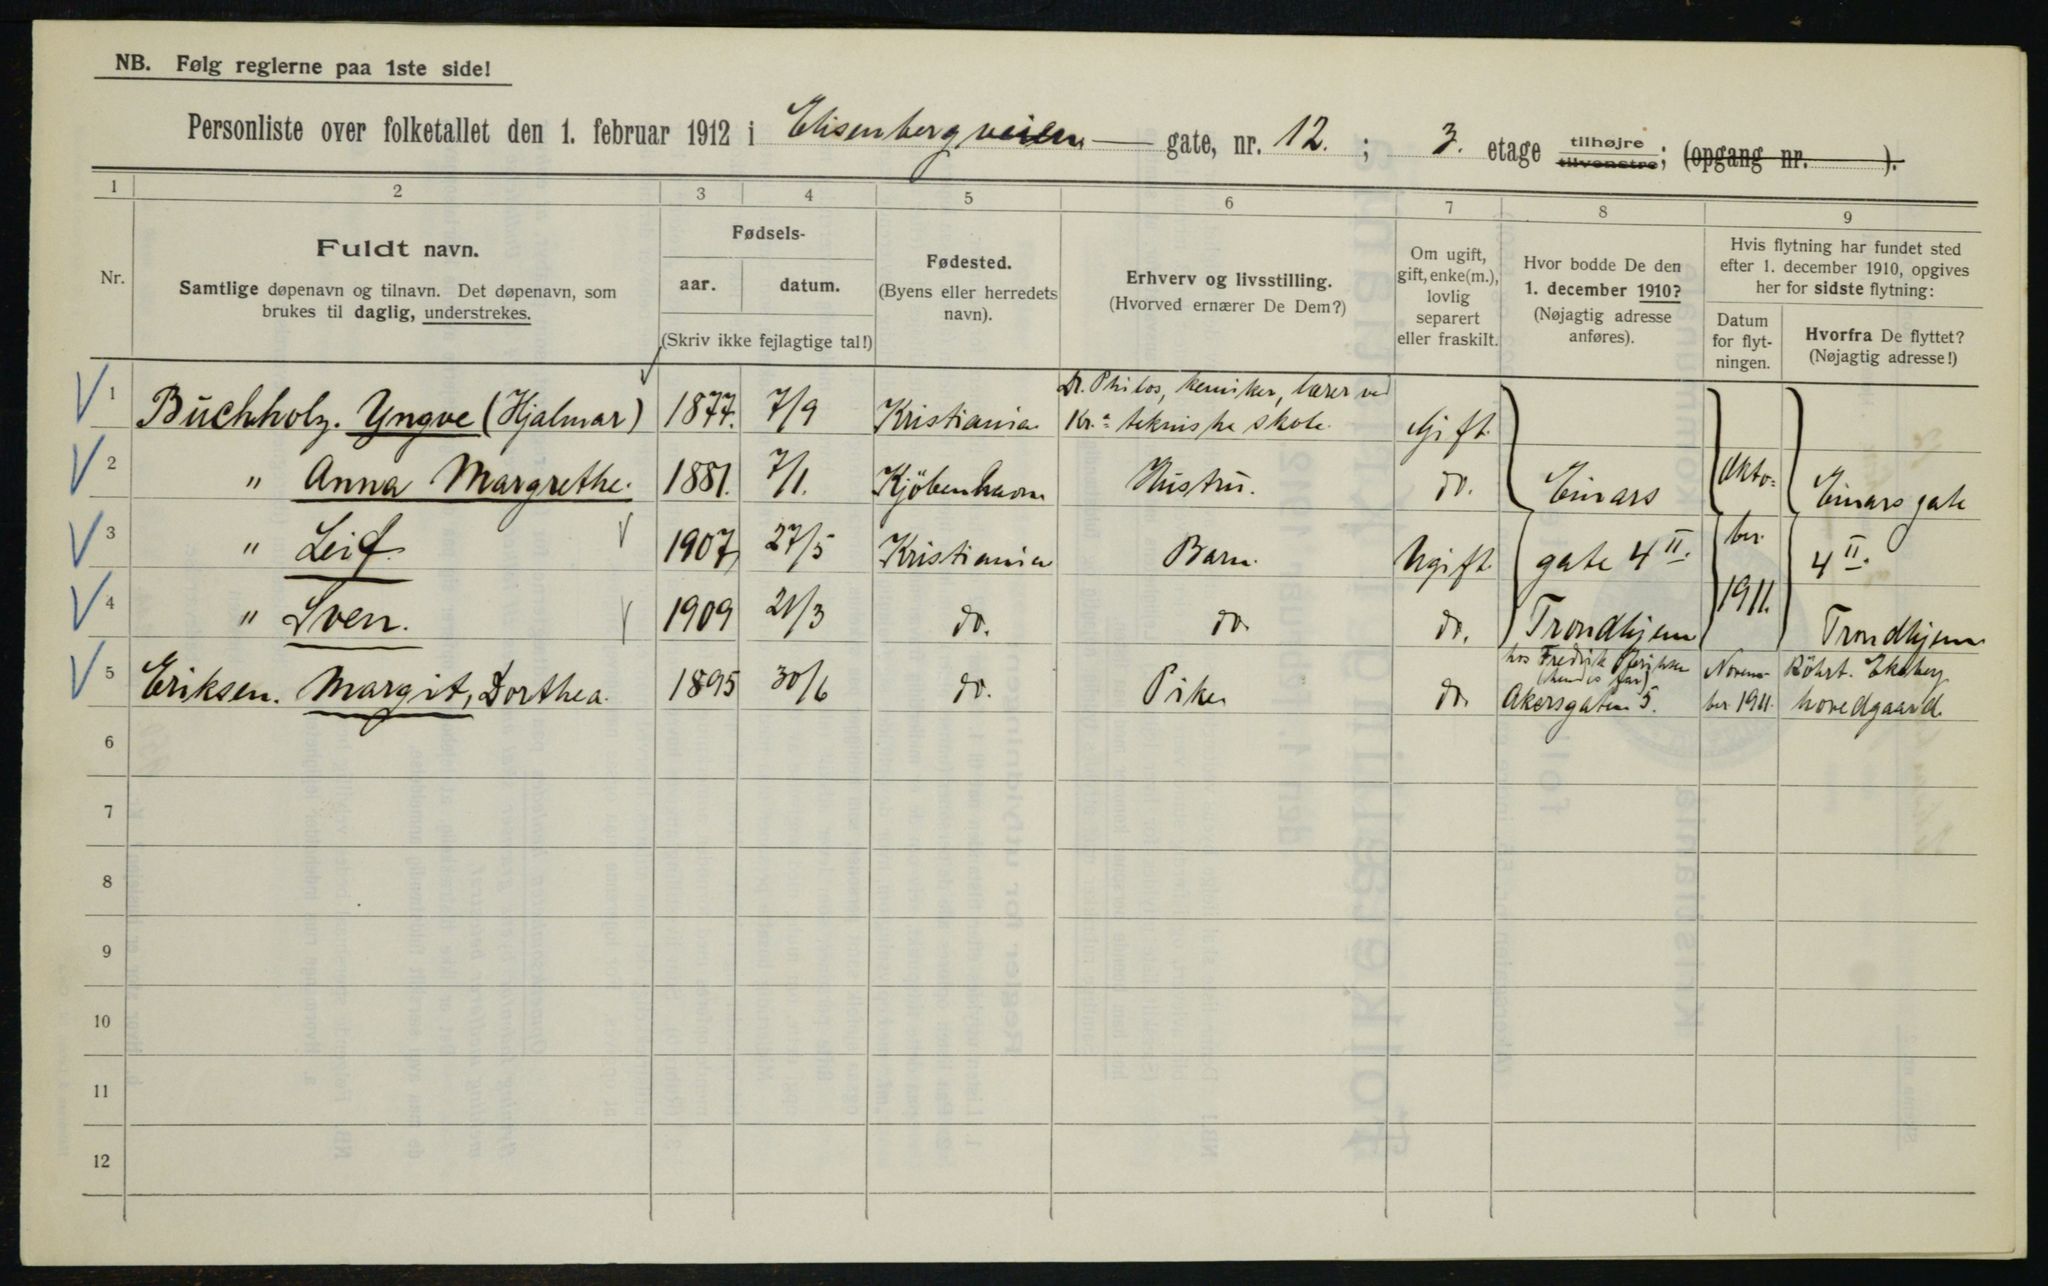 NB. Følg reglerne paa 1ste side!
Personliste over folketallet den 1. februar 1912 i Elisenbergveien gate, nr. 12. ; 3. etage tilhøjre tilvenstre; (opgang nr. ).
1 2 3 4 5 6 7 8 9
Nr.
Fuldt navn.
Samtlige døpenavn og tilnavn. Det døpenavn, som
brukes til daglig, understrekes.
Fødsels-
aar. datum.
(Skriv ikke fejlagtige tal!)
Fødested.
(Byens eller herredets
navn).
Erhverv og livsstilling.
(Hvorved ernærer De Dem?)
Om ugift,
gift, enke(m.),
lovlig
separert
eller fraskilt.
Hvor bodde De den
1. december 1910?
(Nøjagtig adresse
anføres).
Hvis flytning har fundet sted
efter 1. december 1910, opgives
her for sidste flytning:
Datum
for flyt-
ningen.
Hvorfra De flyttet?
(Nøjagtig adresse!)
1 Buchholz. Yngve (Hjalmar) 1877. 7/9 Kristiania Dr. Philos, kemiker, lærer ved
Kr.a tekniske skole. Gift.
2 " Anna Margrethe. 1881. 7/1. Kjöbenhavn Hustru. do. Einars Okto- Einars gate
3 " Leif. 1907 27/5 Kristiania Barn. Ugift. gate 4 II. ber. 4 II.
4 " Sven. 1909 21/3 do. do. do. Trondhjem 1911. Trondhjem
5 Eriksen. Margit, Dorthea. 1895 30/6 do. Pike do. hos Fredrik
(hendes far)
Akersgaten 5. Novem-
ber 1911. Ekeberg
hovedgaard.
6
7
8
9
10
11
12